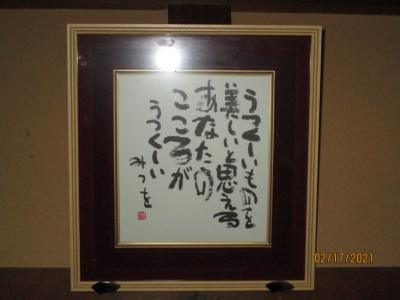 うつくしいものを
美しいと思える
あなたの
こころが
うつくしい
みつを
02/17/2021